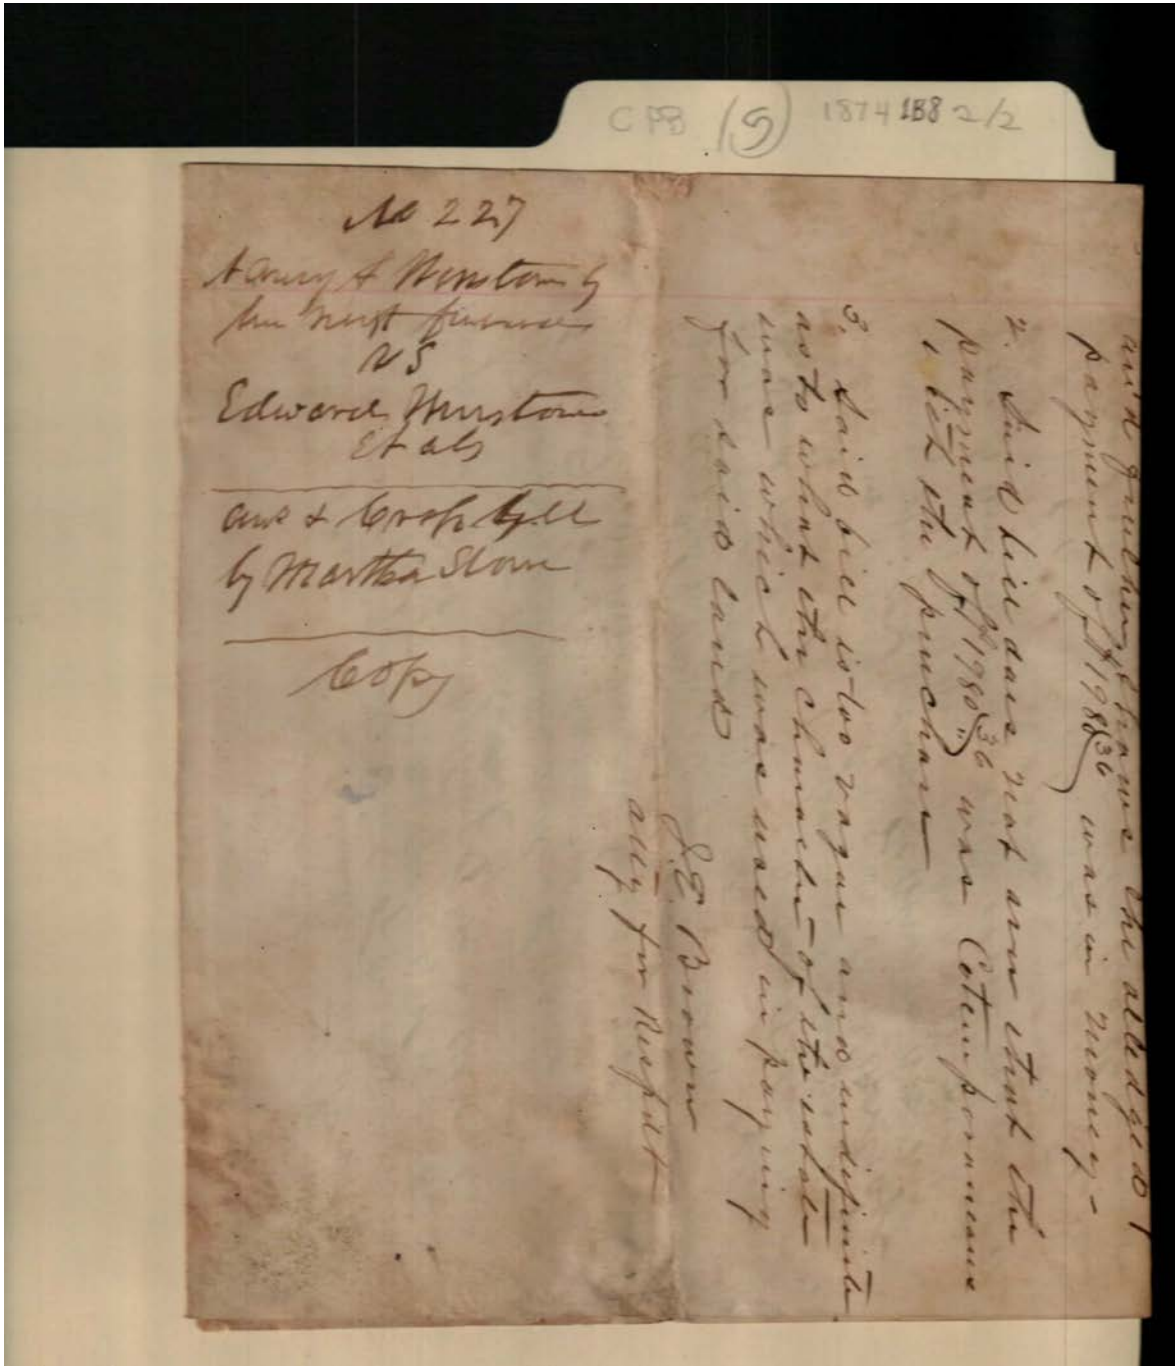 CPB (5) 1874 188 2/2
No 227
Nancy A Winston by
her next friend
vs
Edward Winston
Et als
Ans & Cross bill
by Martha Stone
Copy
the alledged
payment of $1980 36 was in money -
2. Said bill does not aver that the
payment of $1980 36 was Cotemporaneous
with the purchase
3. Said bill is too vague and indefinite
as to what the character of the estate
was which was used in paying
for said land
J.E. Brown
atty for Respdt